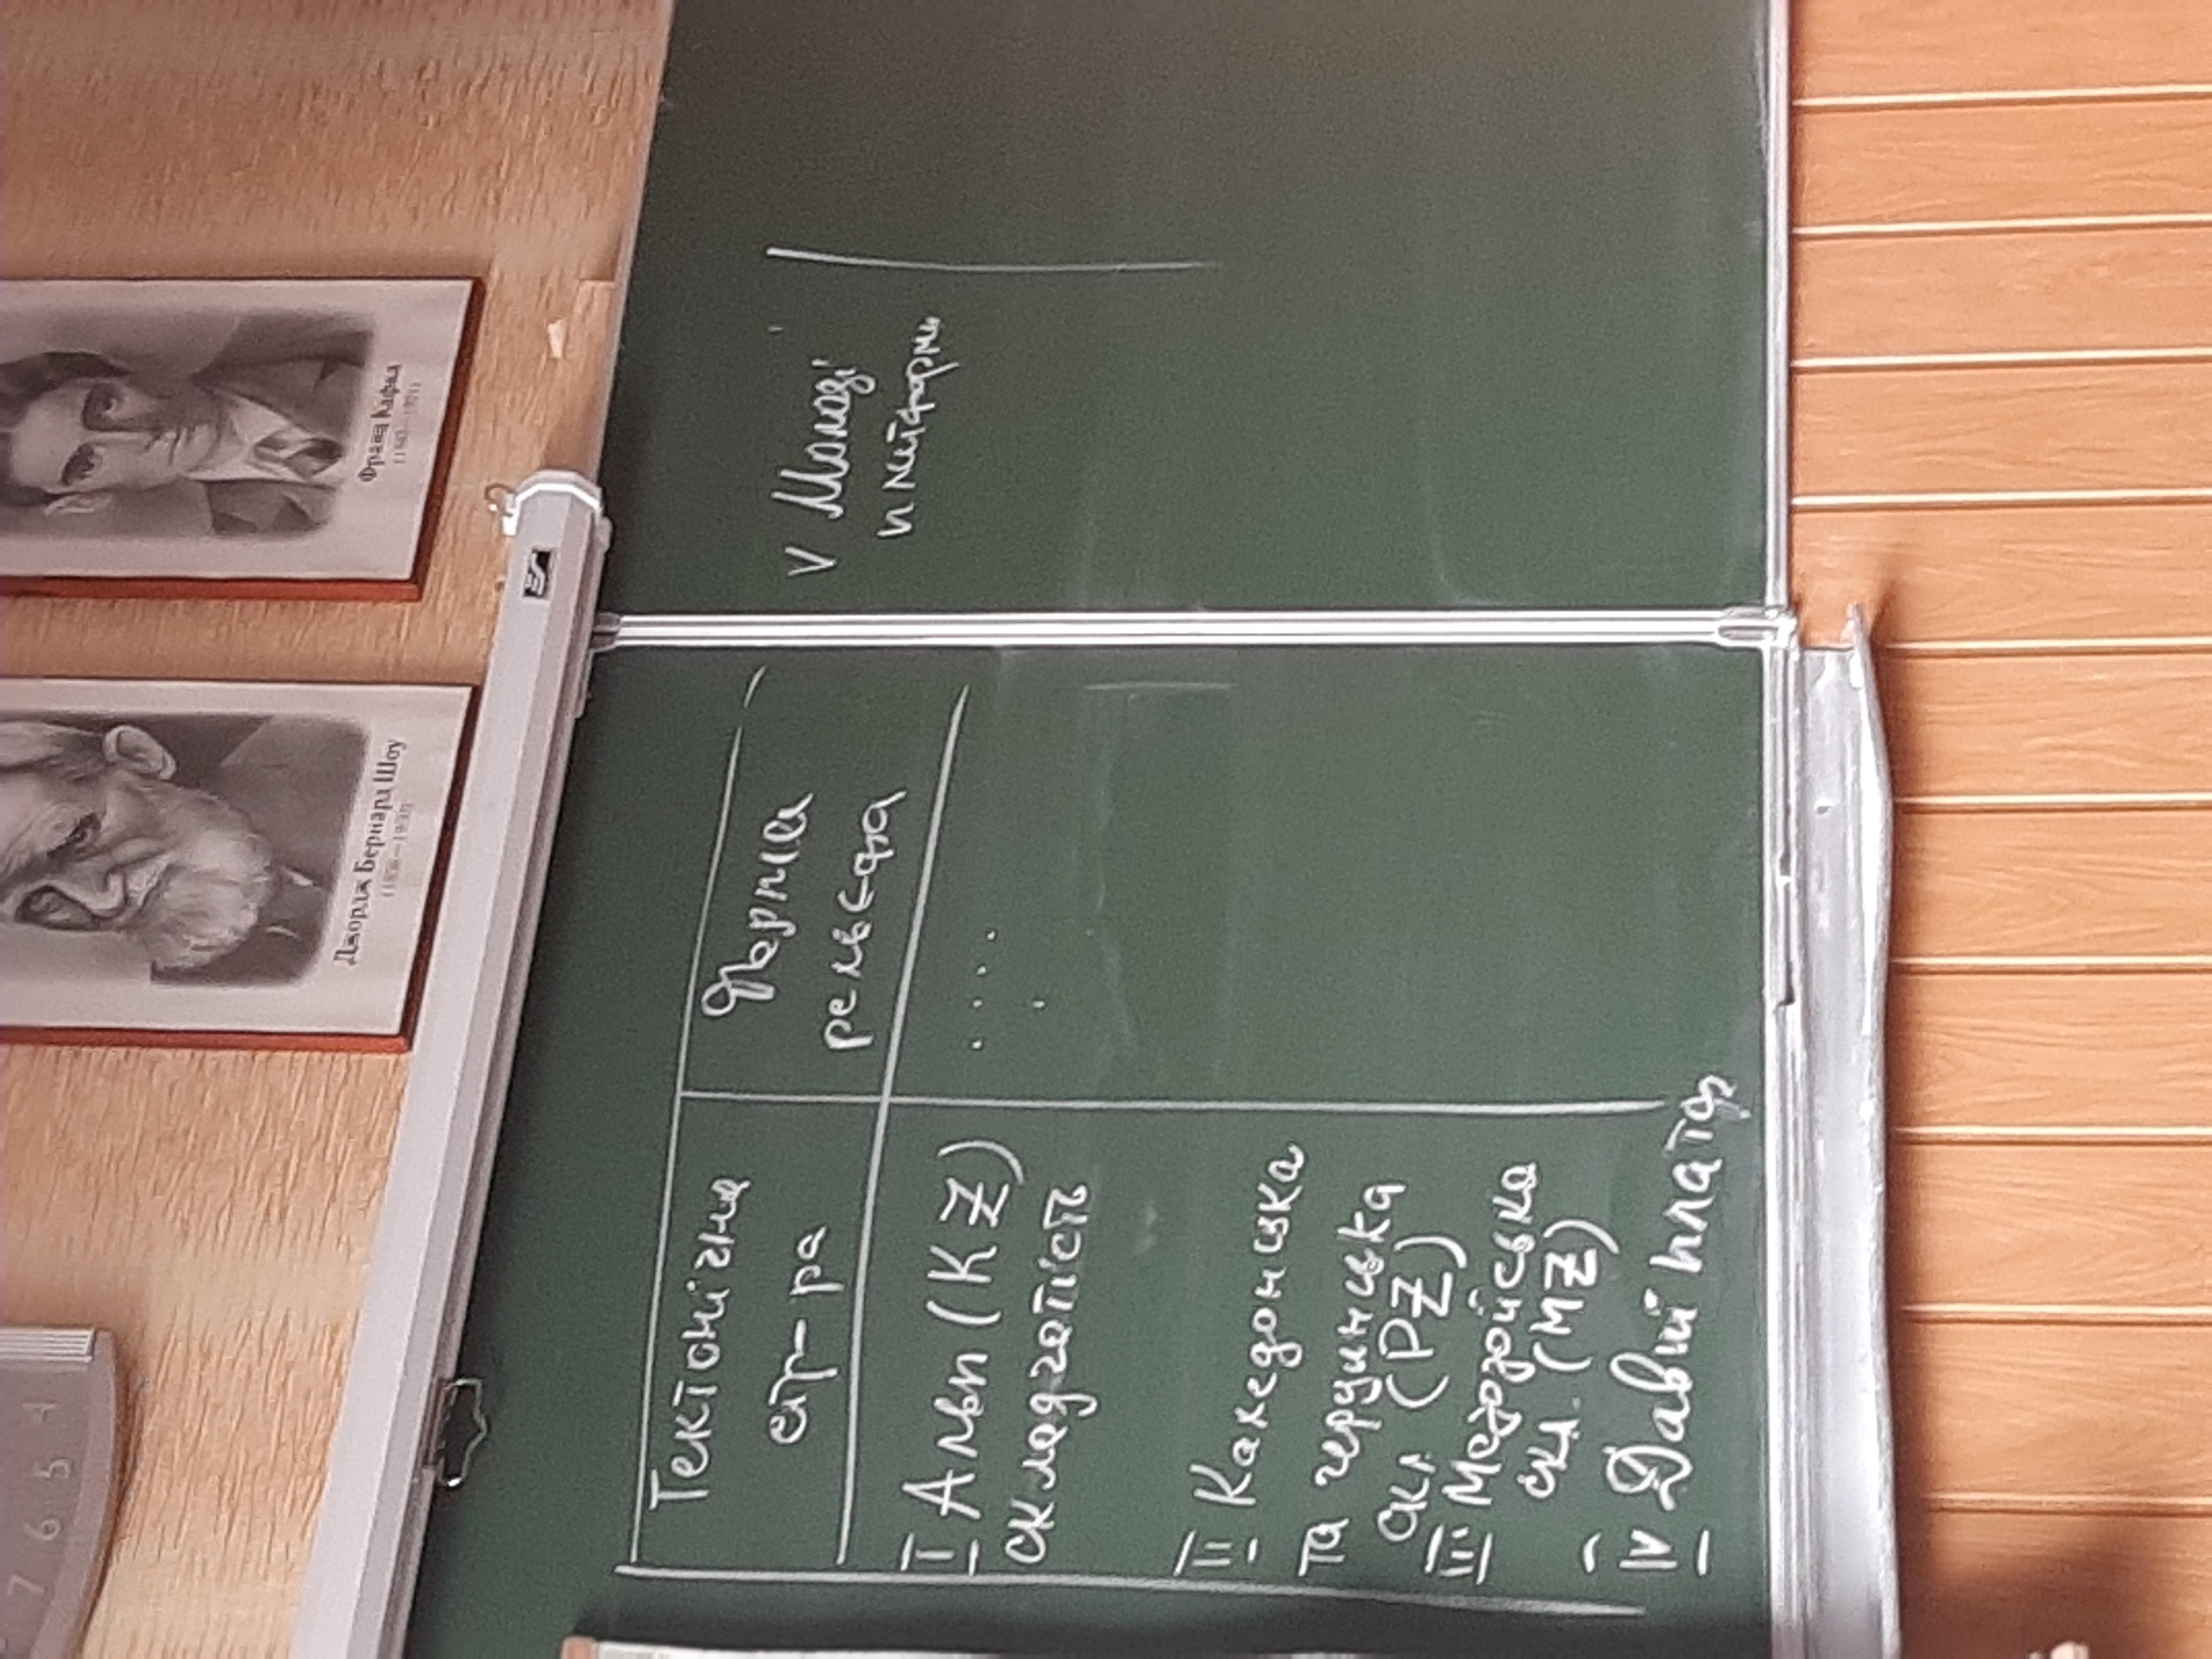 Франц Кафка
(1883—1924)
Джордж Бернард Шоу
(1856—1950)
4
5
6
7
Тектонічна
стр-ра
Форма
рельєфа
I Альп (KZ)
складчатість
. . . .
II Каледонська
та герцинська
скл (PZ)
III Мезозойська
скл. (MZ)
IV Давні платф
V Молоді
платформи